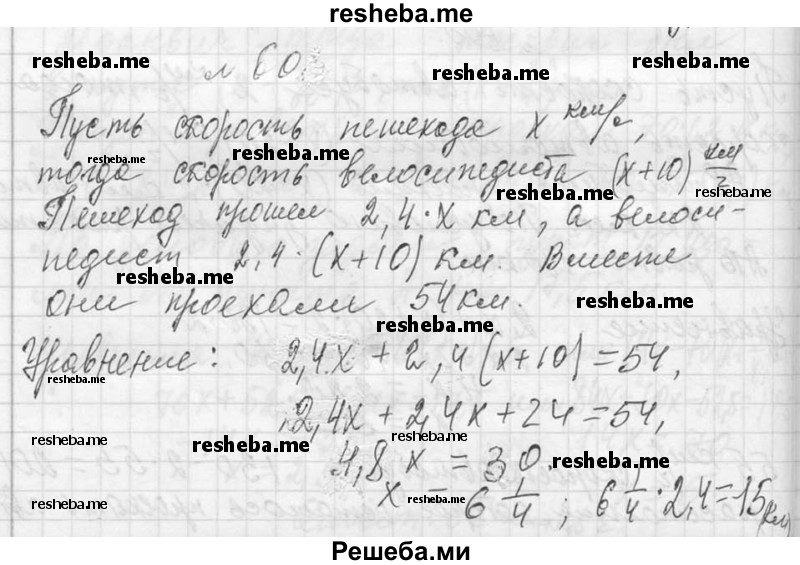 resheba.me
resheba.me resheba.me resheba.me
№ 60
Пусть скорость пешехода x км/ч,
resheba.me resheba.me
тогда скорость велосипедиста (x+10) км/ч
resheba.me resheba.me
Пешеход прошел 2,4·x км, а велоси-
педист 2,4·(x+10) км. Вместе
resheba.me
они проехали 54 км.
resheba.me
resheba.me
Уравнение: 2,4x + 2,4(x+10)=54,
resheba.me
2,4x + 2,4x + 24 = 54,
resheba.me resheba.me resheba.me
4,8 x = 30
resheba.me
x = 6 1/4 ; 6 1/4 · 2,4 = 15 (км)
resheba.me resheba.me
Решеба.ми